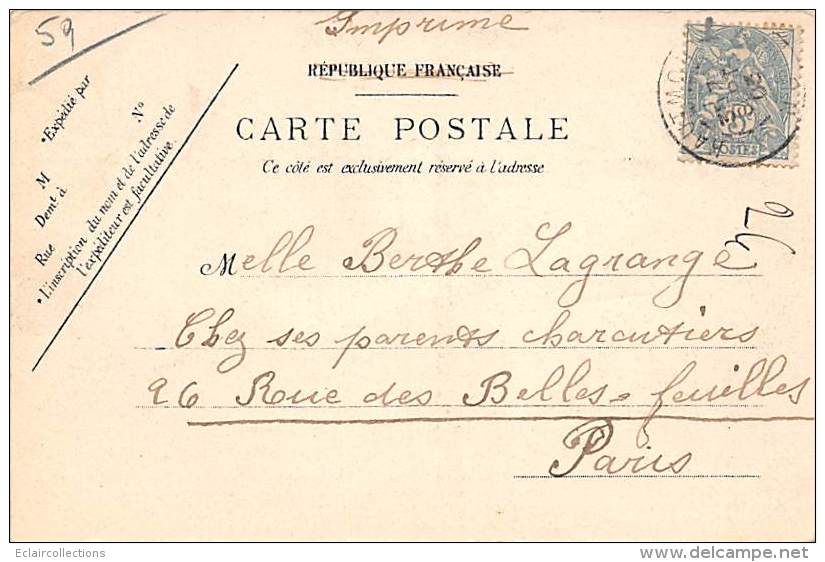 59
Imprimé
RÉPUBLIQUE FRANÇAISE
CARTE POSTALE
Ce côté est exclusivement réservé à l'adresse
*Expédié par
N°
M
Demt à
Rue
*L'inscription du nom et de l'adresse de
l'expéditeur est facultative.
POSTES
Melle Berthe Lagrange
Chez ses parents charcutiers
26 Rue des Belles=feuilles
Paris
Eclaircollections
delcampe.net